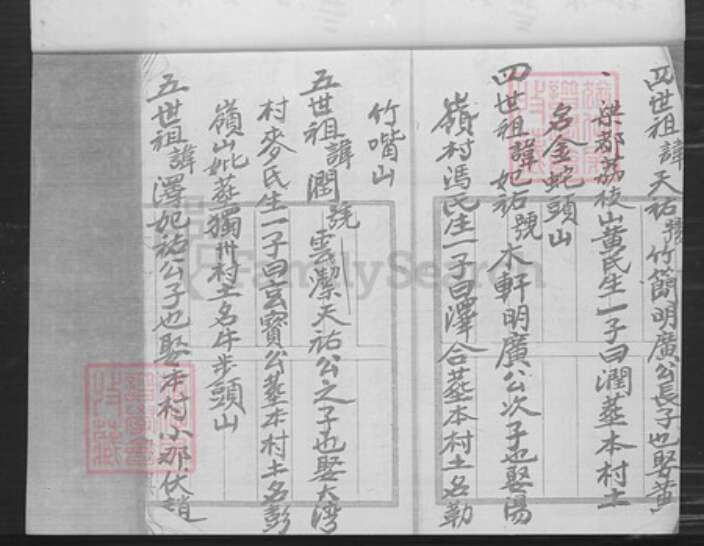 四世祖諱天祐號竹簡明廣公長子也娶黃
梁都荔枝山黃氏生一子曰潤葬本村土
名金蛇頭山
四世祖諱妃祐號木軒明廣公次子也娶湯
嶺村馮氏生一子曰澤合葬本村土名勒
竹嘴山
五世祖諱潤號雲潔天祐公之子也娶大灣
村麥氏生一子曰玄寶公葬本村土名彭
嶺山妣葬獨卅村土名牛步頭山
五世祖諱澤妃祐公子也娶本村小那伏趙
FamilySearch